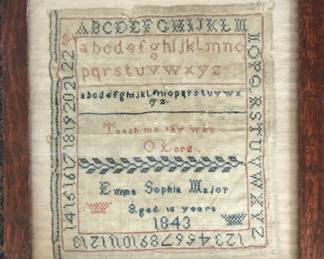 ABCDEFGHIJKLM
NOPQRSTUVWXYZ
abcdefghijklmno
pqrstuvwxyz
abcdefghijklmnopqrstuvwx
yz
Teach me thy way
O Lord.
Emma Sophia Major
Aged 10 years
1843
1 2 3 4 5 6 7 8 9 10 11 12 13
14 15 16 17 18 19 20 21 22